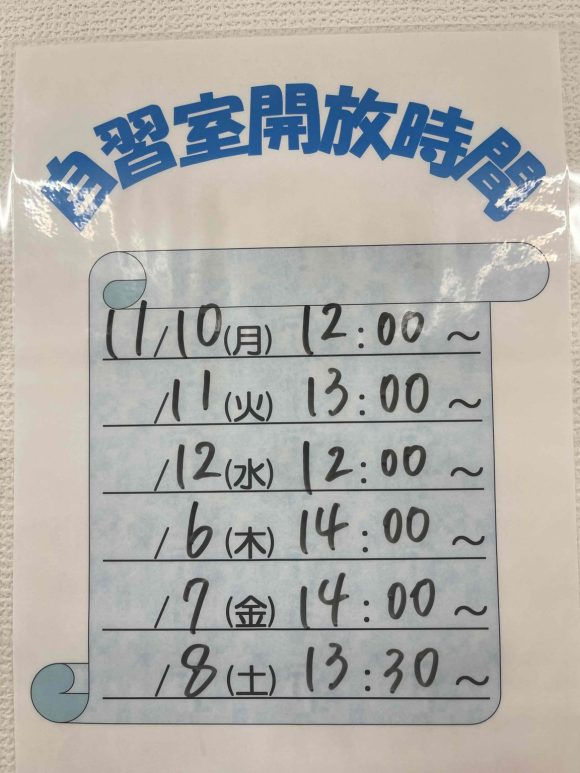 自習室開放時間
11/10(月) 12:00~
/11(火) 13:00~
/12(水) 12:00~
/6(木) 14:00~
/7(金) 14:00~
/8(土) 13:30~